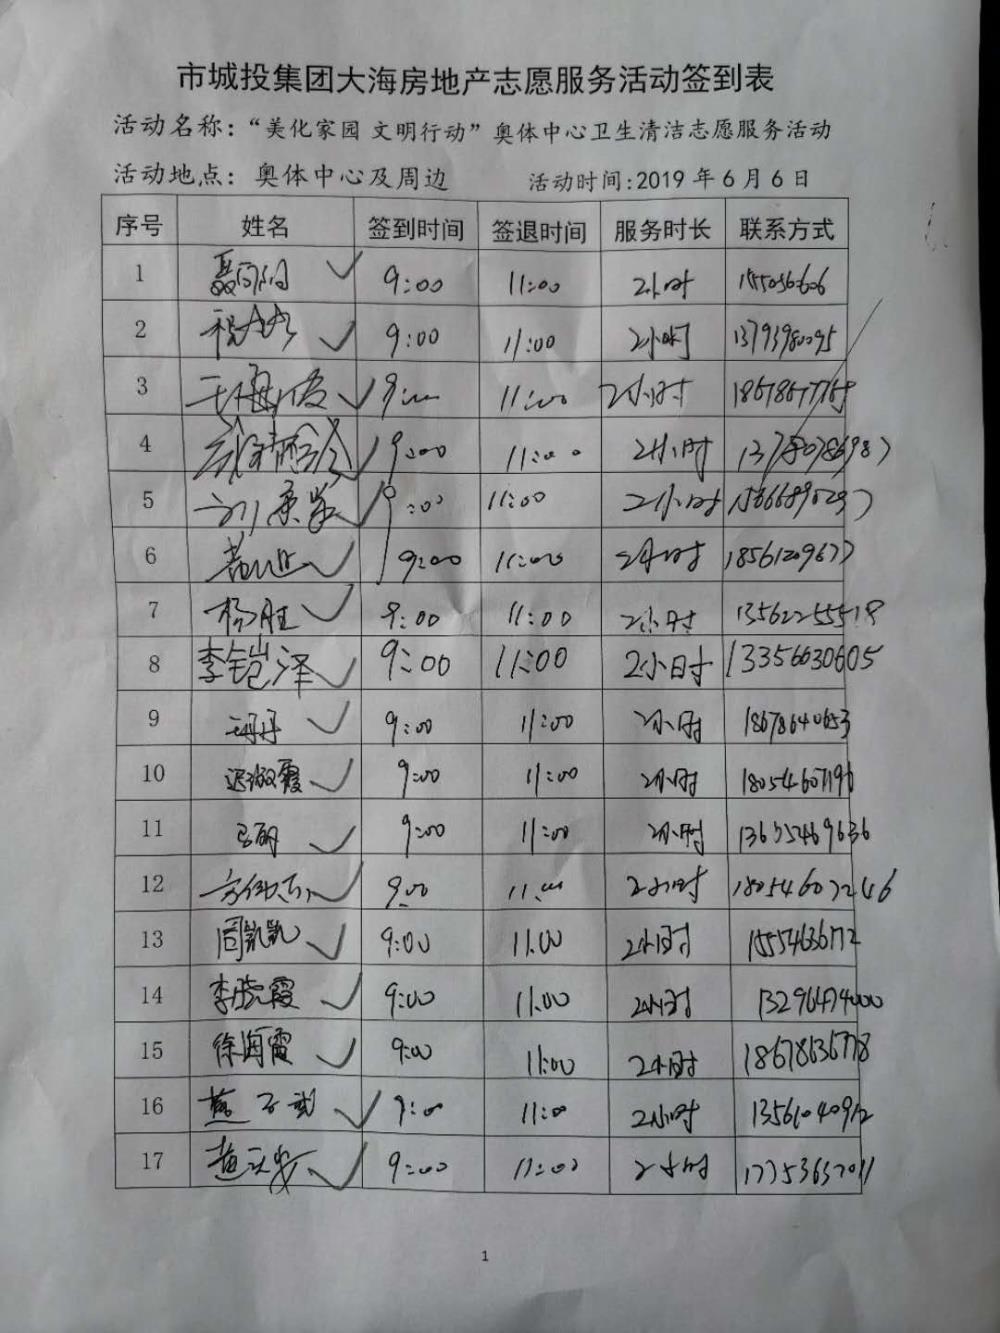 市城投集团大海房地产志愿服务活动签到表
活动名称：“美化家园 文明行动”奥体中心卫生清洁志愿服务活动
活动地点：奥体中心及周边 活动时间:2019年6月6日
序号 姓名 签到时间 签退时间 服务时长 联系方式
1 9:00 11:00 2小时
2 9:00 11:00 2小时 13793980095
3 9:00 11:00 2小时
4 9:00 11:00 2小时
5 9:00 11:00 2小时
6 9:00 11:00 2小时 18561209677
7 杨胜 9:00 11:00 2小时 13562255518
8 李铠泽 9:00 11:00 2小时 13356630605
9 王丹丹 9:00 11:00 2小时 18678640653
10 9:00 11:00 2小时 18054607196
11 9:00 11:00 2小时 13655469636
12 9:00 11:00 2小时 18054607246
13 周凯凯 9:00 11:00 2小时 15554636772
14 李晓霞 9:00 11:00 2小时 13296474000
15 徐海霞 9:00 11:00 2小时 18678636778
16 9:00 11:00 2小时 13561040912
17 9:00 11:00 2小时 17753657011
1